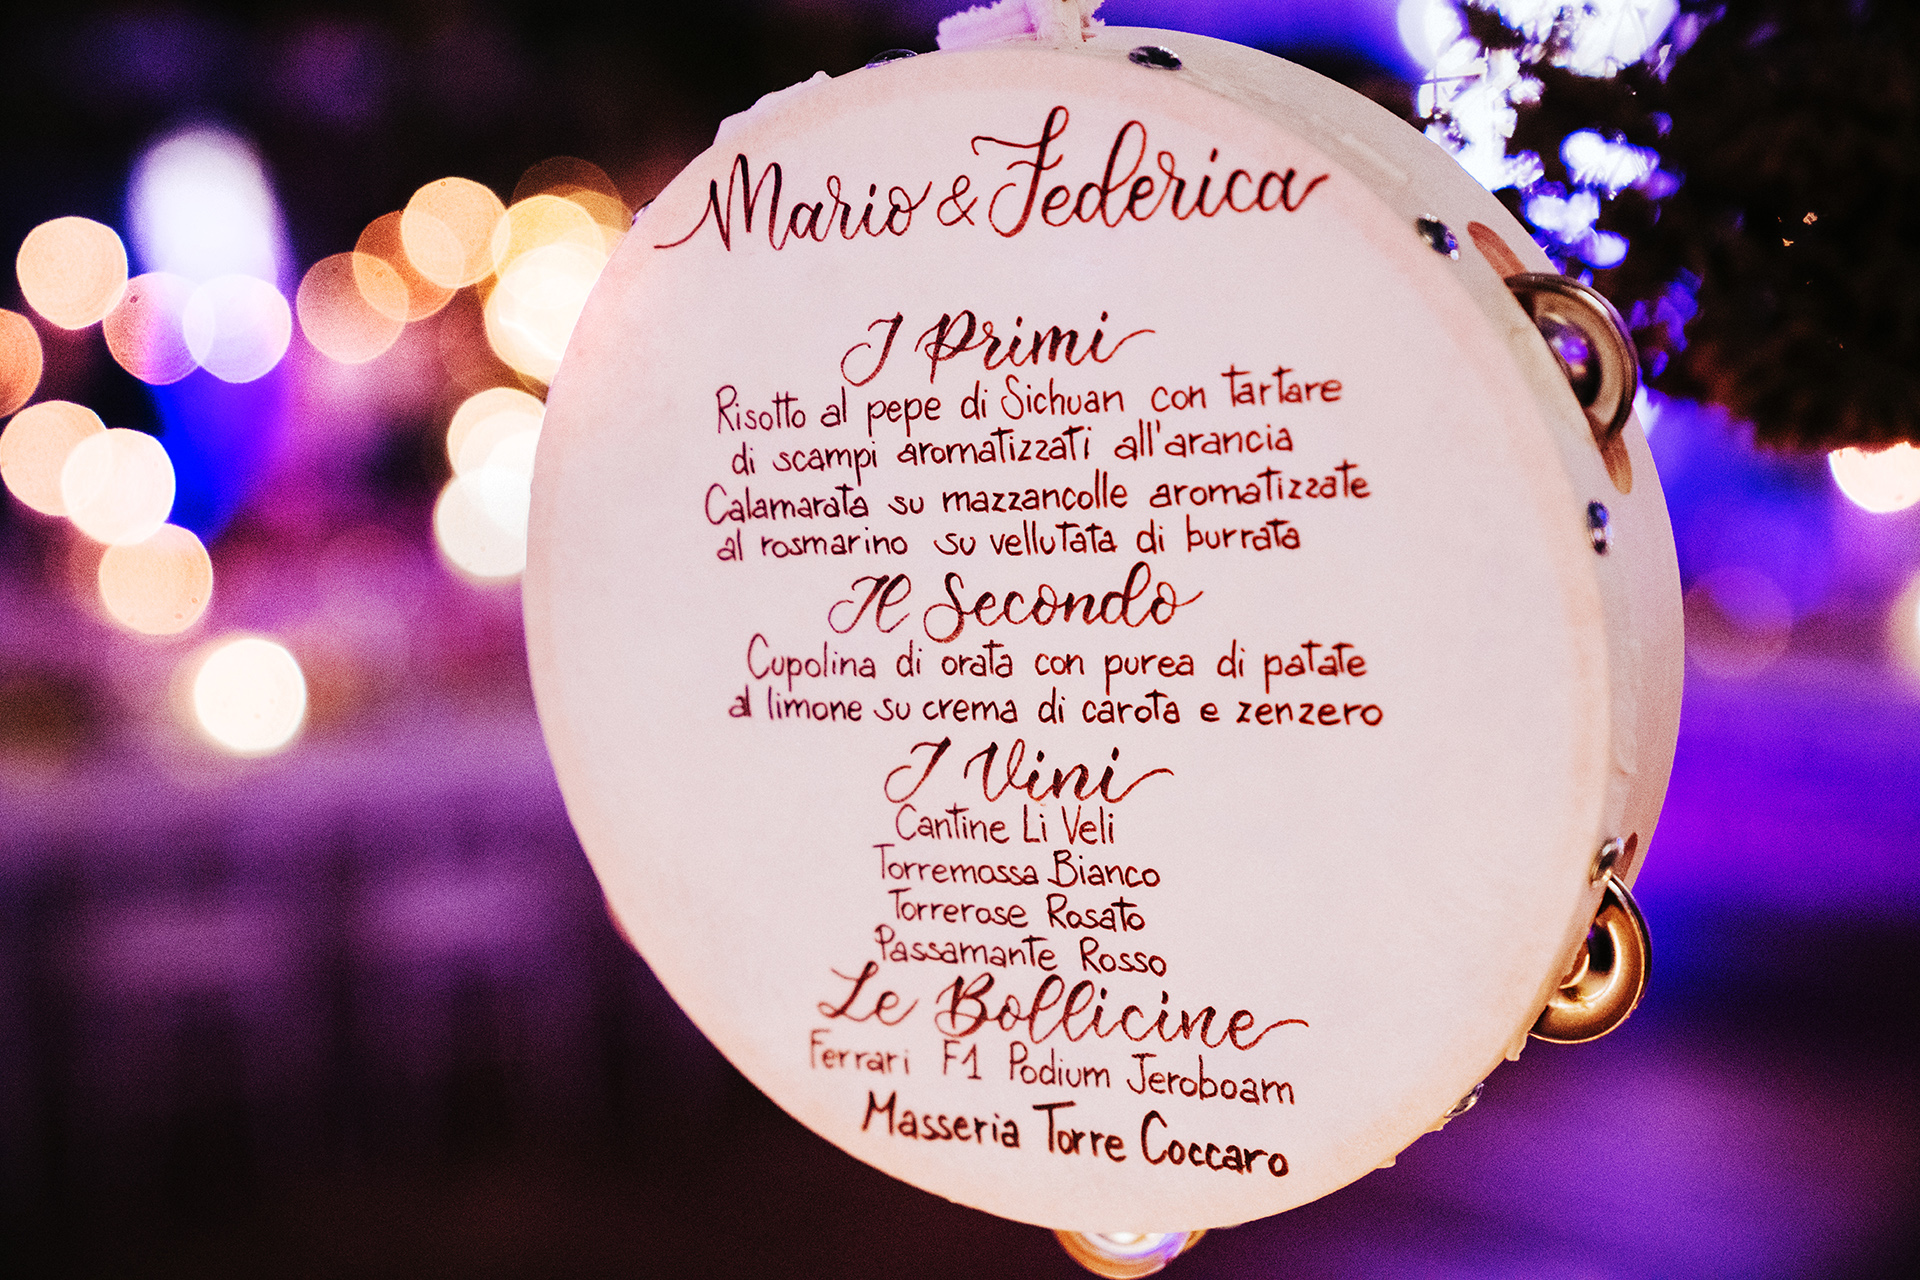 Mario & Federica
I Primi
Risotto al pepe di Sichuan con tartare
di scampi aromatizzati all'arancia
Calamarata su mazzancolle aromatizzate
al rosmarino su vellutata di burrata
Il Secondo
Cupolina di orata con purea di patate
al limone su crema di carota e zenzero
I Vini
Cantine Li Veli
Torremossa Bianco
Torrerose Rosato
Passamante Rosso
Le Bollicine
Ferrari F1 Podium Jeroboam
Masseria Torre Coccaro